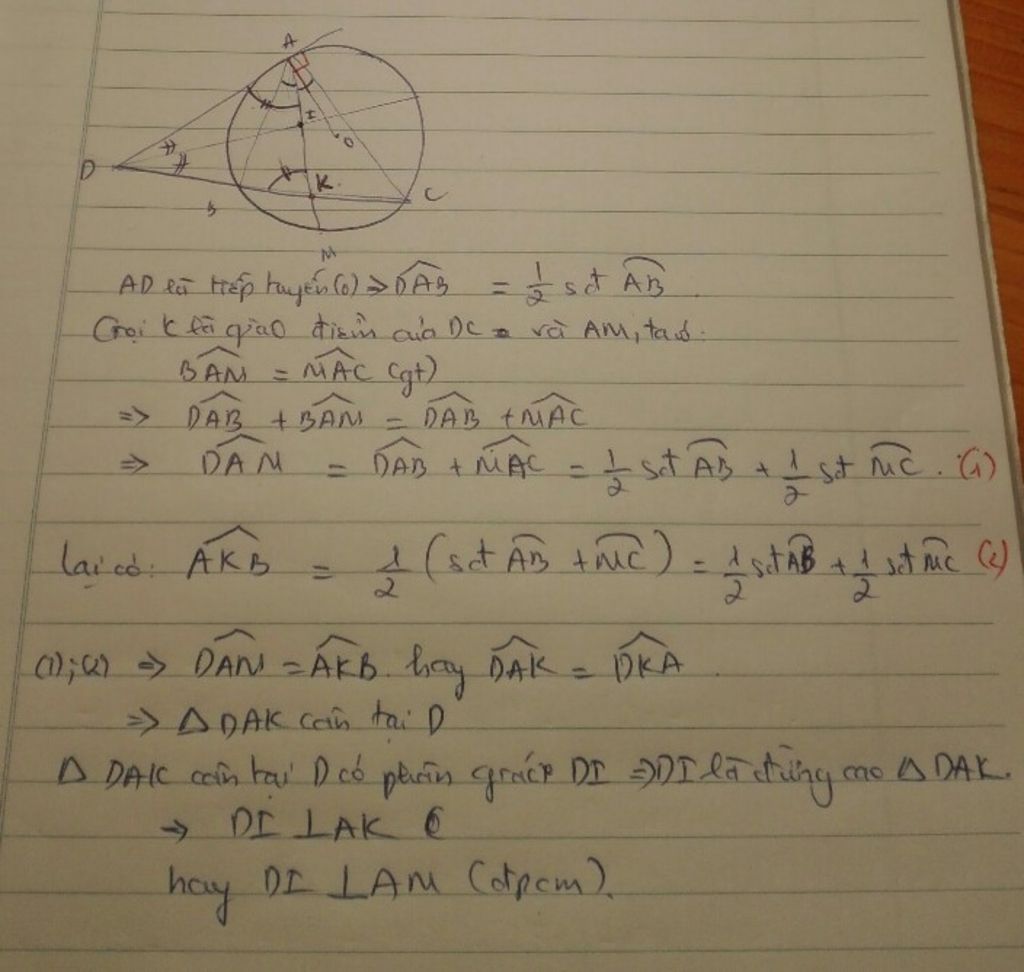 A
I
O
D
K.
C
B
M
AD là tiếp tuyến (O) => \widehat{DAB} = 1/2 sđ \widehat{AB}.
Gọi K là giao điểm của DC và AM, ta có:
\widehat{BAM} = \widehat{MAC} (gt)
=> \widehat{DAB} + \widehat{BAM} = \widehat{DAB} + \widehat{MAC}
=> \widehat{DAM} = \widehat{DAB} + \widehat{MAC} = 1/2 sđ \widehat{AB} + 1/2 sđ \widehat{MC}. (1)
lại có: \widehat{AKB} = 1/2 (sđ \widehat{AB} + \widehat{MC}) = 1/2 sđ \widehat{AB} + 1/2 sđ \widehat{MC} (2)
(1); (2) => \widehat{DAM} = \widehat{AKB} hay \widehat{DAK} = \widehat{DKA}.
=> Δ DAK cân tại D
Δ DAK cân tại D có phân giác DI => DI là đường cao Δ DAK.
=> DI ⊥ AK
hay DI ⊥ AM (đpcm).